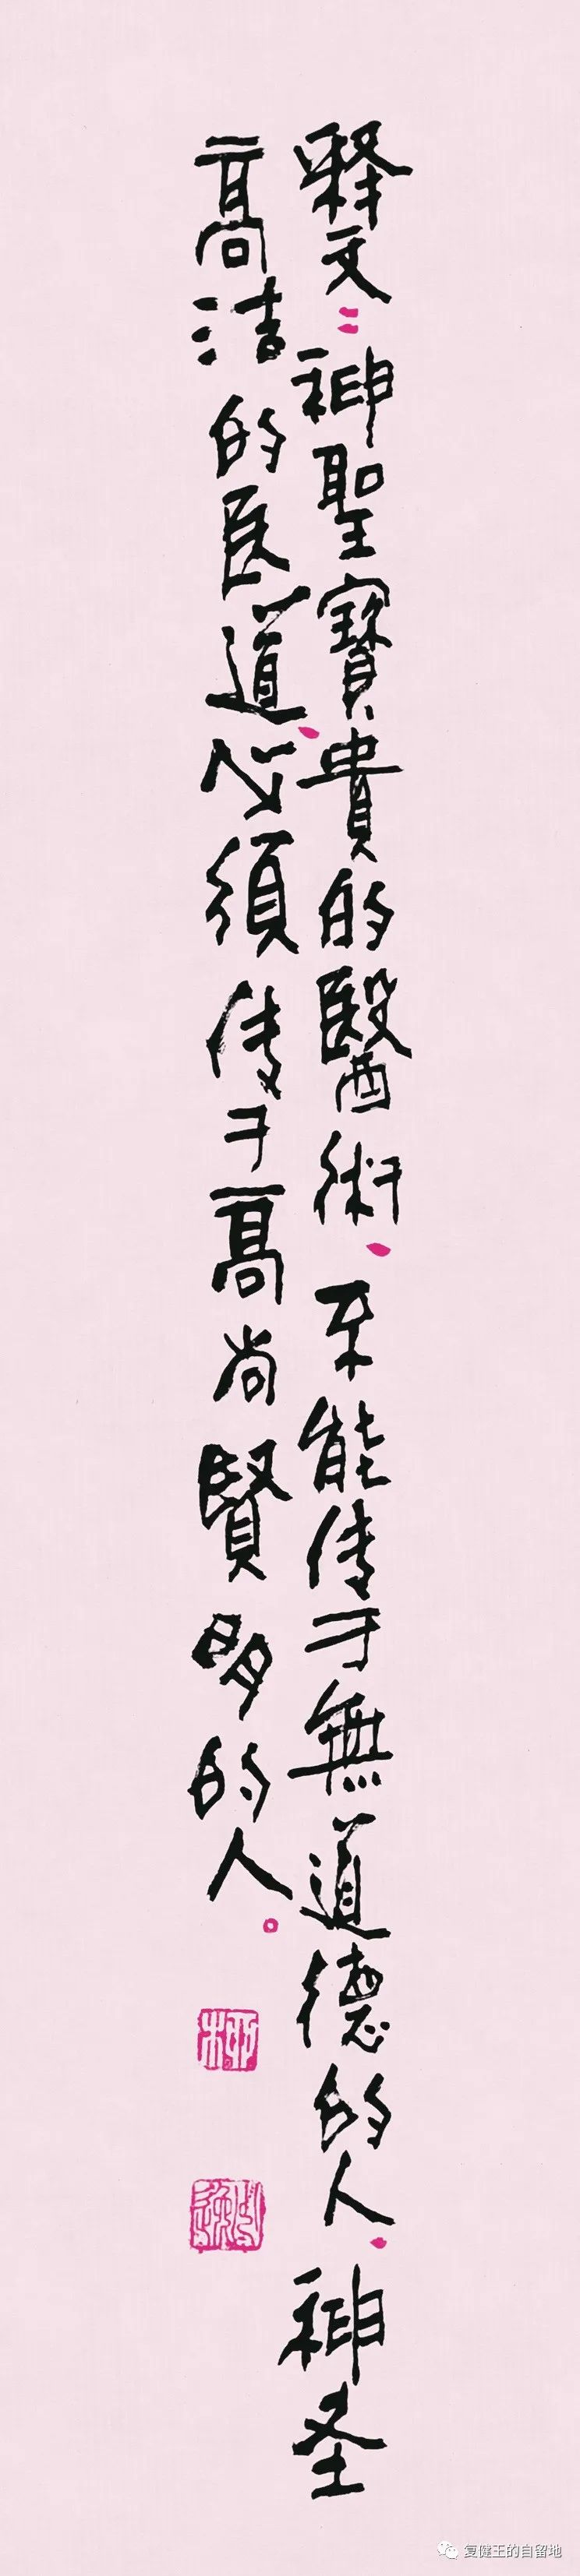 释文：神聖寶貴的醫術、不能传于無道德的人、神圣
高洁的医道、必须传于高尚賢明的人。
复健王的自留地